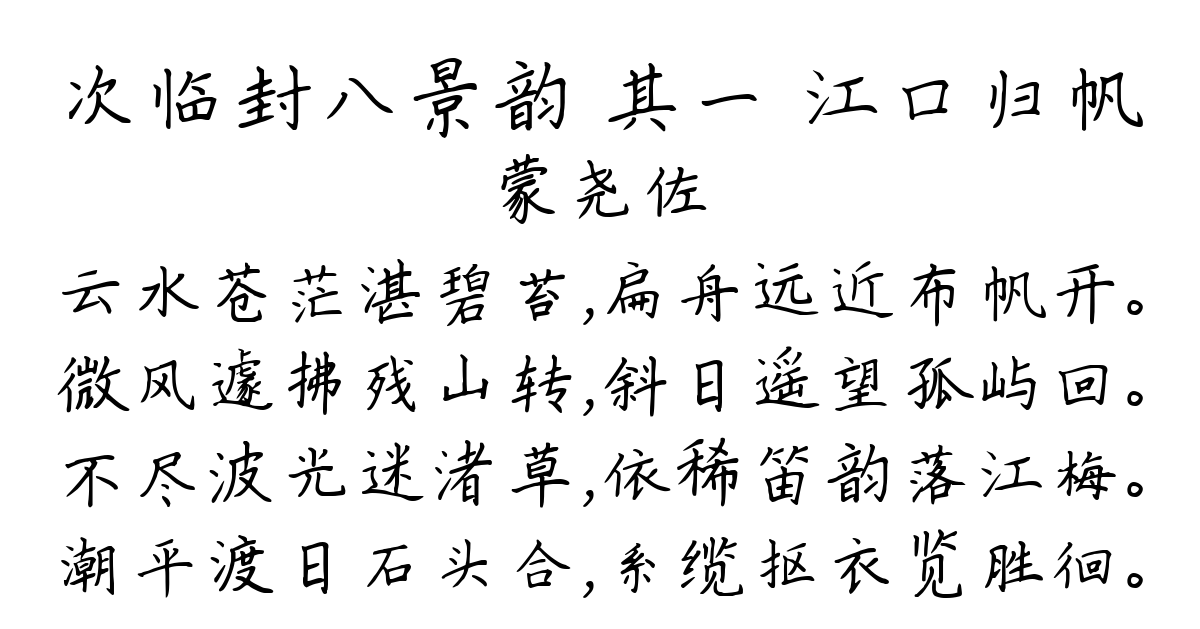 次临封八景韵 其一 江口归帆
蒙尧佐
云水苍茫湛碧苔,扁舟远近布帆开。
微风遽拂残山转,斜日遥望孤屿回。
不尽波光迷渚草,依稀笛韵落江梅。
潮平渡日石头合,系缆抠衣览胜徊。